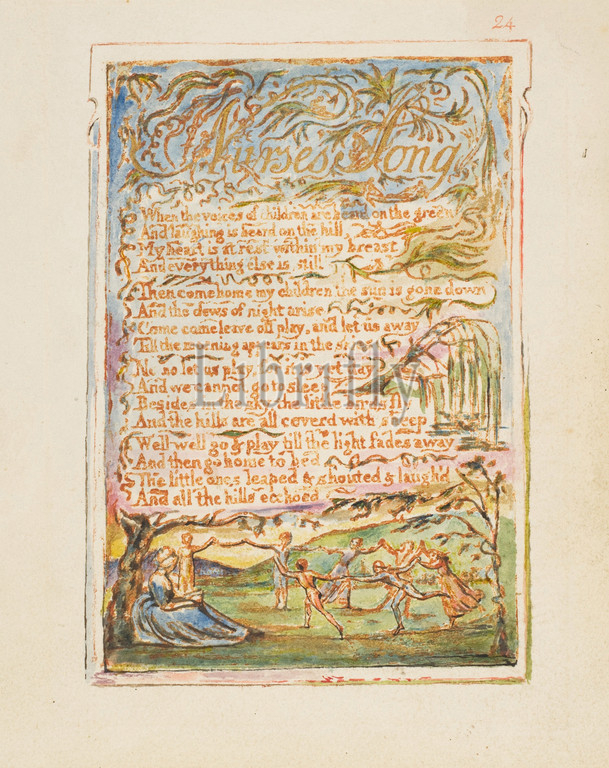 24
Nurses Song
When the voices of children are heard on the green
And laughing is heard on the hill,
My heart is at rest within my breast
And every thing else is still
Then come home my children the sun is gone down
And the dews of night arise
Come come leave off play, and let us away
Till the morning appears in the
No no let us play, for it is yet day
And we cannot go to sleep
Besides in the sky, the little birds fly
And the hills are all coverd with sheep
Well well go & play till the light fades away
And then go home to bed
The little ones leaped & shouted & laugh'd
And all the hills ecchoed